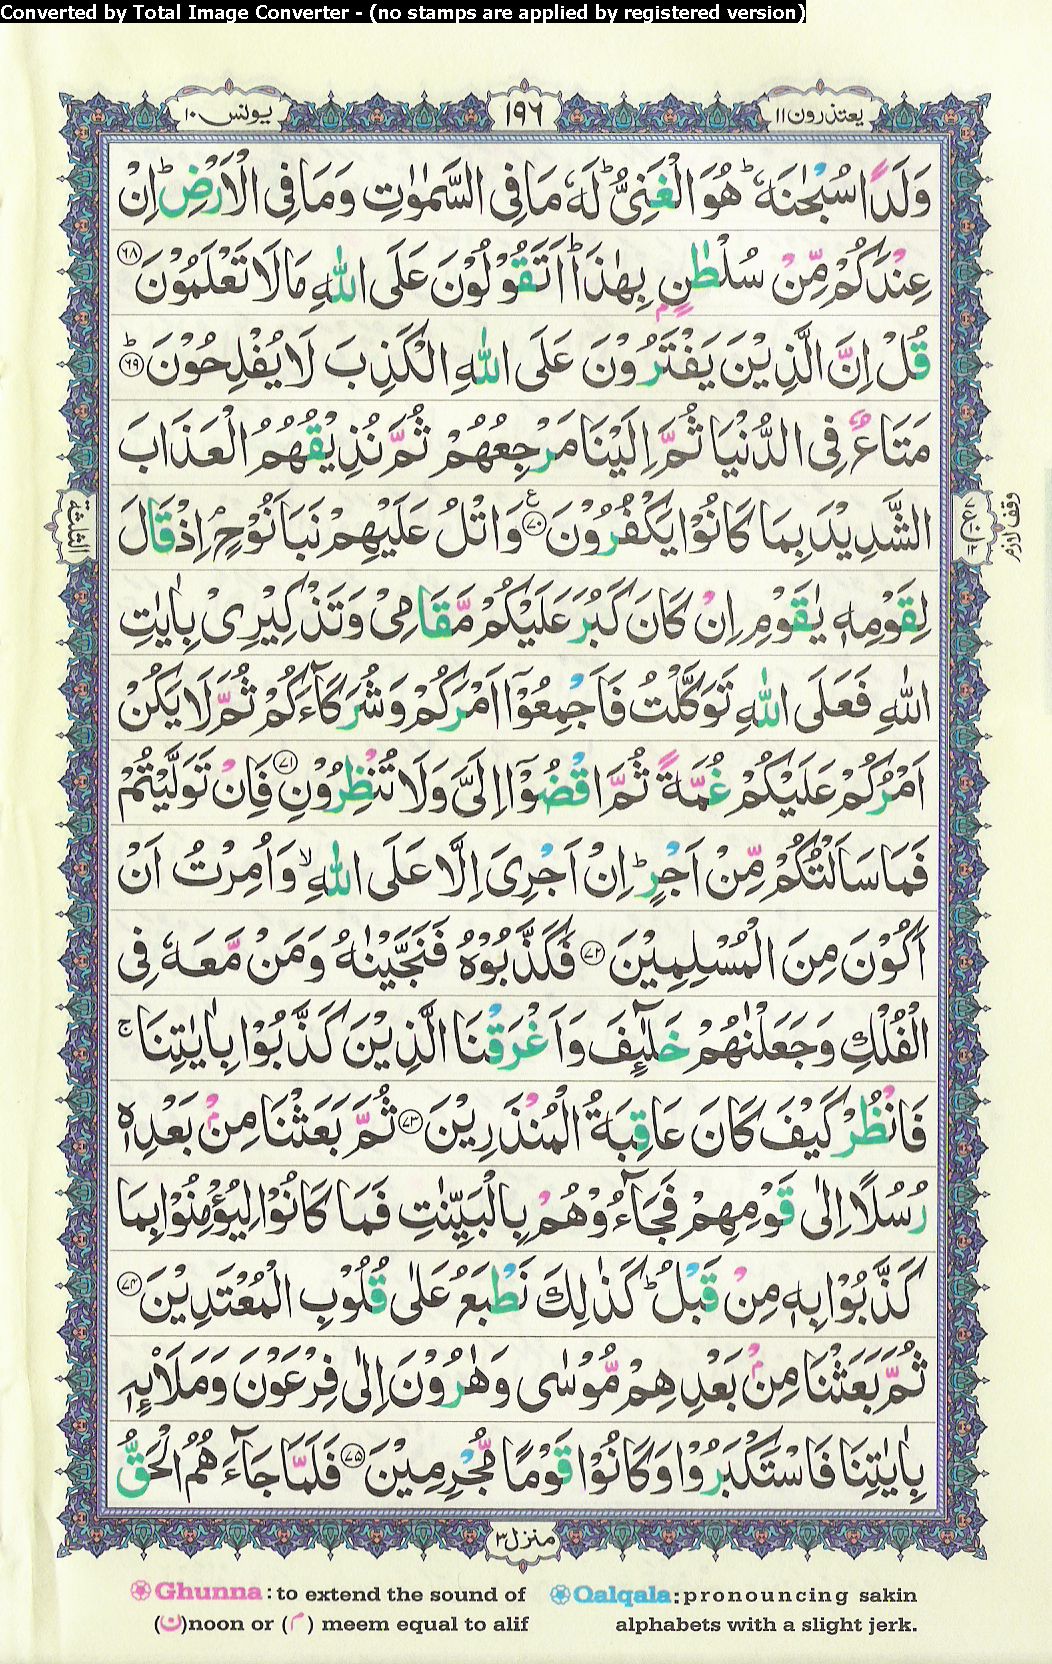 Converted by Total Image Converter - (no stamps are applied by registered version)
يعتذرون ١١
١٩٦
يونس ١٠
وَلَدًا سُبْحٰنَهٗ ؕ هُوَ الْغَنِىُّ ؕ لَهٗ مَا فِى السَّمٰوٰتِ وَمَا فِى الْاَرْضِ ؕ اِنْ
عِنْدَكُمْ مِّنْ سُلْطٰنٍۭ بِهٰذَا ؕ اَتَقُوْلُوْنَ عَلَى اللّٰهِ مَا لَا تَعْلَمُوْنَ ۝۶۸
قُلْ اِنَّ الَّذِيْنَ يَفْتَرُوْنَ عَلَى اللّٰهِ الْكَذِبَ لَا يُفْلِحُوْنَ ؕ ۝۶۹
مَتَاعٌ فِى الدُّنْيَا ثُمَّ اِلَيْنَا مَرْجِعُهُمْ ثُمَّ نُذِيْقُهُمُ الْعَذَابَ
الشَّدِيْدَ بِمَا كَانُوْا يَكْفُرُوْنَ ۝۷۰ ع وَاتْلُ عَلَيْهِمْ نَبَاَ نُوْحٍ ۘ اِذْ قَالَ
لِقَوْمِهٖ يٰقَوْمِ اِنْ كَانَ كَبُرَ عَلَيْكُمْ مَّقَامِىْ وَتَذْكِيْرِىْ بِاٰيٰتِ
اللّٰهِ فَعَلَى اللّٰهِ تَوَكَّلْتُ فَاَجْمِعُوْٓا اَمْرَكُمْ وَشُرَكَآءَكُمْ ثُمَّ لَا يَكُنْ
اَمْرُكُمْ عَلَيْكُمْ غُمَّةً ثُمَّ اقْضُوْٓا اِلَىَّ وَلَا تُنْظِرُوْنِ ۝۷۱ فَاِنْ تَوَلَّيْتُمْ
فَمَا سَاَلْتُكُمْ مِّنْ اَجْرٍ ؕ اِنْ اَجْرِىَ اِلَّا عَلَى اللّٰهِ ۙ وَاُمِرْتُ اَنْ
اَكُوْنَ مِنَ الْمُسْلِمِيْنَ ۝۷۲ فَكَذَّبُوْهُ فَنَجَّيْنٰهُ وَمَنْ مَّعَهٗ فِى
الْفُلْكِ وَجَعَلْنٰهُمْ خَلٰٓئِفَ وَاَغْرَقْنَا الَّذِيْنَ كَذَّبُوْا بِاٰيٰتِنَا ۚ
فَانْظُرْ كَيْفَ كَانَ عَاقِبَةُ الْمُنْذَرِيْنَ ۝۷۳ ثُمَّ بَعَثْنَا مِنْۢ بَعْدِهٖ
رُسُلًا اِلٰى قَوْمِهِمْ فَجَآءُوْهُمْ بِالْبَيِّنٰتِ فَمَا كَانُوْا لِيُؤْمِنُوْا بِمَا
كَذَّبُوْا بِهٖ مِنْ قَبْلُ ؕ كَذٰلِكَ نَطْبَعُ عَلٰى قُلُوْبِ الْمُعْتَدِيْنَ ۝۷۴
ثُمَّ بَعَثْنَا مِنْۢ بَعْدِهِمْ مُّوْسٰى وَهٰرُوْنَ اِلٰى فِرْعَوْنَ وَمَلَا۟ئِهٖ
بِاٰيٰتِنَا فَاسْتَكْبَرُوْا وَكَانُوْا قَوْمًا مُّجْرِمِيْنَ ۝۷۵ فَلَمَّا جَآءَهُمُ الْحَقُّ
وقف لازم
الثلثة
منزل ٣
Ghunna: to extend the sound of
(ن)noon or (م) meem equal to alif
Qalqala: pronouncing sakin
alphabets with a slight jerk.